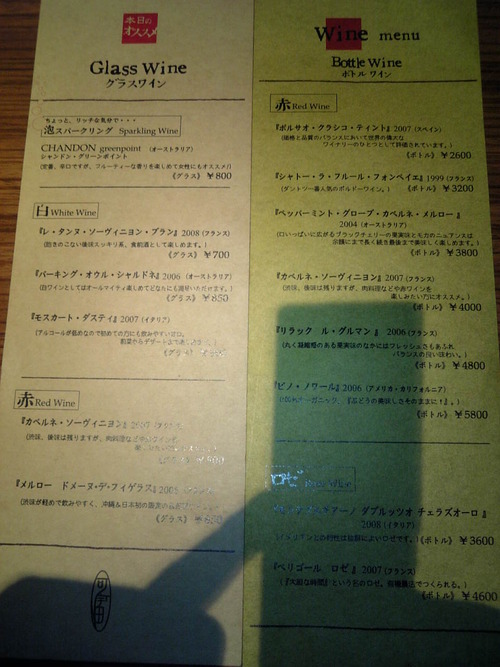 本日の
オススメ
Glass Wine
グラスワイン
ちょっと、リッチな気分で・・・
泡スパークリング Sparkling Wine
CHANDON greenpoint (オーストラリア)
シャンドン・グリーンポイント
(定番、辛口ですが、フルーティーな香りを楽しめて女性にもオススメ)
《グラス》 ￥800
白 White Wine
『レ・タンヌ・ソーヴィニヨン・ブラン』2008 (フランス)
《グラス》 ￥700
『バーキング・オウル・シャルドネ』2006 (オーストラリア)
《グラス》 ￥850
『モスカート・ダスティ』2007 (イタリア)
(アルコールが低めなので初めての方にも飲みやすい
《グラス》
赤 Red Wine
『カベルネ・ソーヴィニヨン』2007
(渋味、後味は残りますが、肉料理など
『メルロー ドメーヌ・デ・フィゲラス』
(渋味が軽めで飲みやすく、沖縄&日本初の
《グラス》
Wine menu
Bottle Wine
ボトル ワイン
赤 Red Wine
『ボルサオ・クラシコ・ティント』2007 (スペイン)
(価格と品質のバランスにおいて世界の偉大な
ワイナリーのひとつとして評価されています。)
《ボトル》 ￥2600
『シャトー・ラ・フルール・フォンペイェ』1999 (フランス)
(ダントツ一番人気のボルドーワイン。) 《ボトル》 ￥3200
『ペッパーミント・グローブ・カベルネ・メルロー』
2004 (オーストラリア)
(口いっぱいに広がるブラックチェリーの果実味とモカのニュアンスは
余韻にまで長く続き最後まで美味しく楽しめます。)
《ボトル》 ￥3800
『カベルネ・ソーヴィニヨン』2007 (フランス)
(渋味、後味は残りますが、肉料理などや赤ワインを
楽しみたい方にオススメ。)
《ボトル》 ￥4000
『リラック ル・グルマン』 2006 (フランス)
(丸く凝縮感のある果実味のなかにはフレッシュさもあふれ
バランスの良い味わい。)
《ボトル》 ￥4800
『ピノ・ノワール』2006 (アメリカ・カリフォルニア)
《ボトル》 ￥5800
ロゼ
2008 (イタリア)
《ボトル》 ￥3600
『ペリゴール ロゼ』2007 (フランス)
《ボトル》 ￥4600